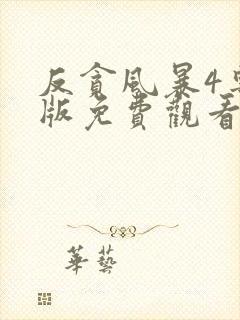 反貪風暴4
版免費觀看
華藝